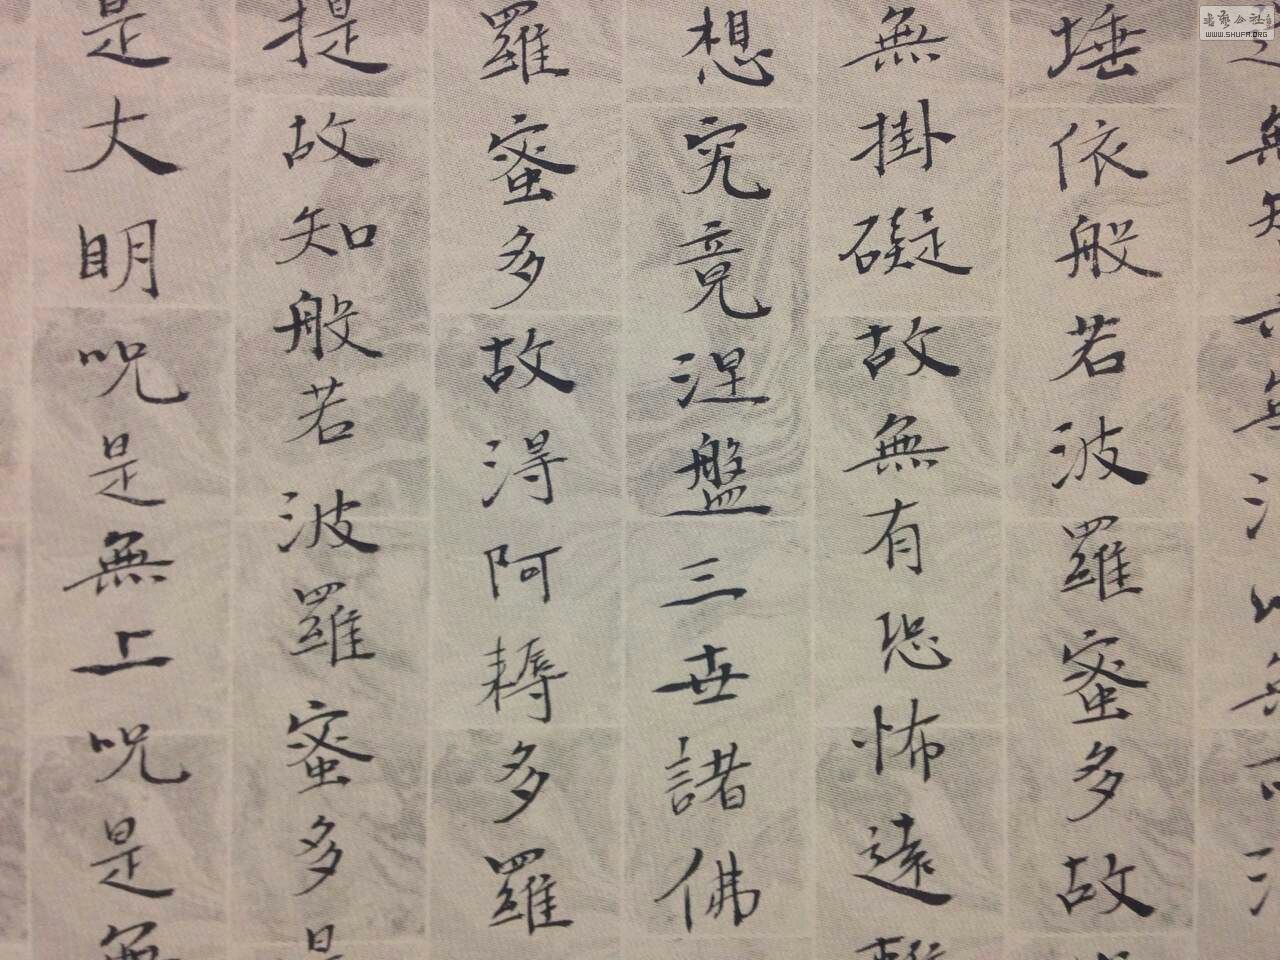 埵依般若波羅蜜多故
無掛礙故無有恐怖遠
想究竟涅盤三世諸佛
羅蜜多故得阿耨多羅
提故知般若波羅蜜多是
是大明呪是無上呪是無
WWW.SHUFA.ORG